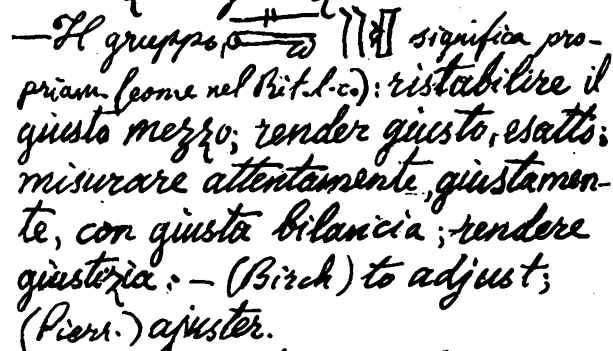 —Il gruppo, significa pro-
priam. (come nel Rit. l. c.): ristabilire il
giusto mezzo; render giusto, esatto;
misurare attentamente, giustamen-
te, con giusta bilancia; rendere
giustizia: — (Birch) to adjust;
(Pierr.) ajuster.